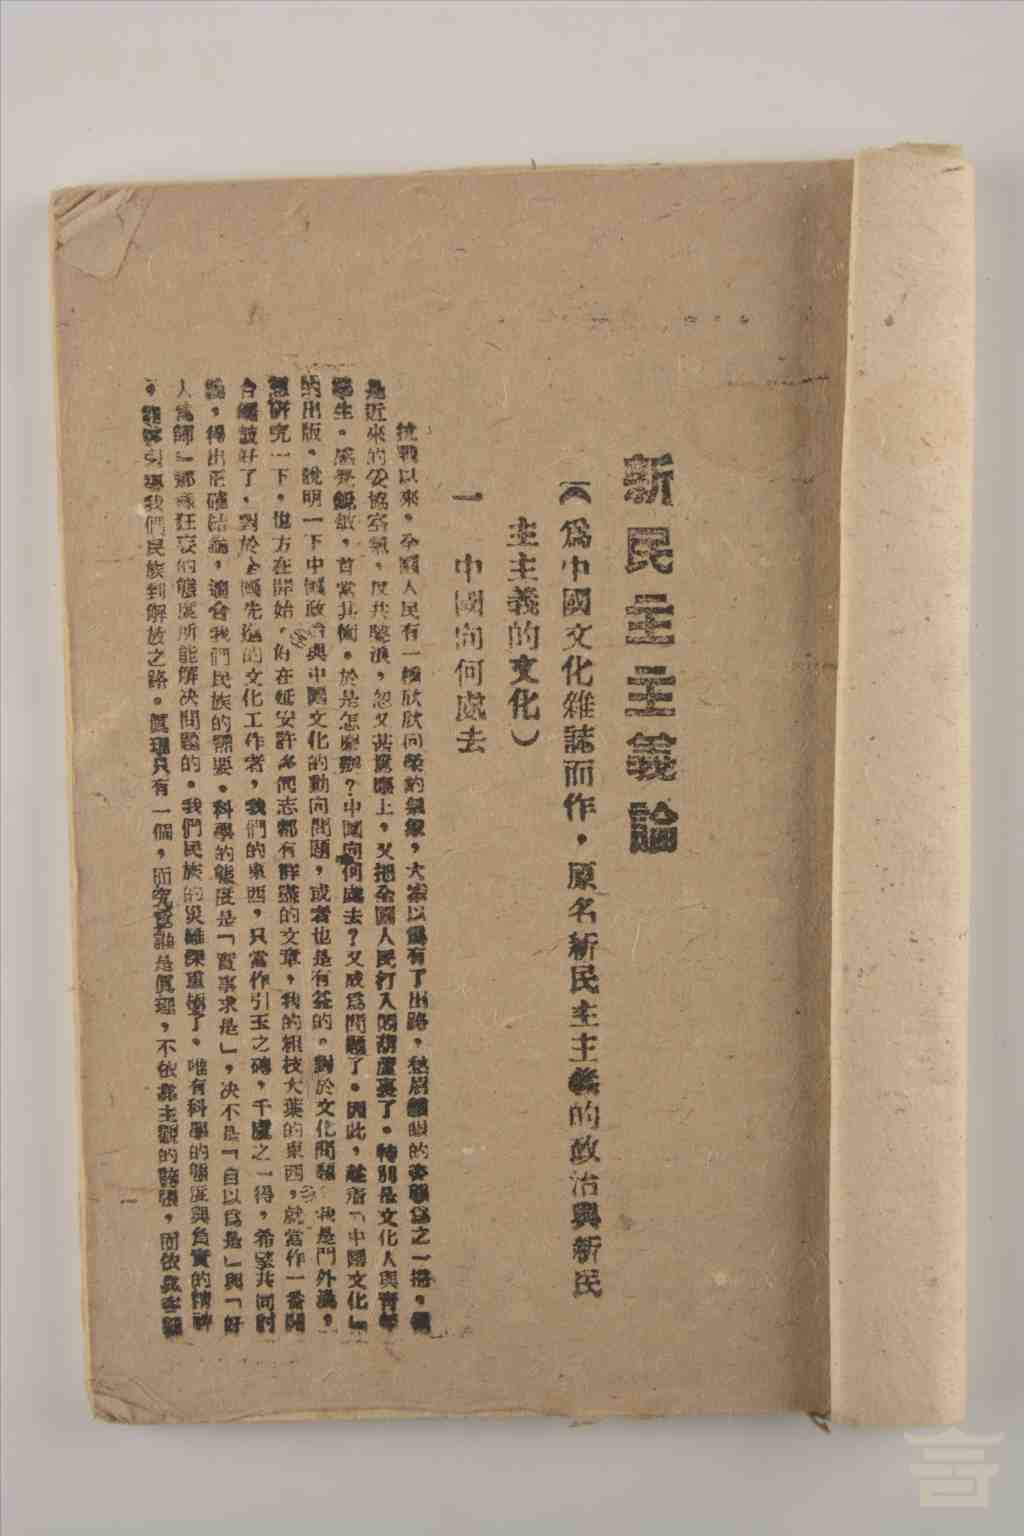 新民主主義論
（為中國文化雜誌而作，原名新民主主義的政治與新民
主主義的文化）
一 中國向何處去
抗戰以來，全國人民有一種欣欣向榮的氣象，大家以為有了出路，愁眉鎖眼的姿態為之一掃，但
是近來的妥協空氣，反共聲浪，忽又甚囂塵上，又把全國人民打入悶葫蘆裏了。特別是文化人與青年
學生，感覺銳敏，首當其衝。於是怎麼辦？中國向何處去？又成為問題了。因此，趁着「中國文化」
的出版，說明一下中國政治與中國文化的動向問題，或者也是有益的。對於文化問題，我是門外漢，
想研究一下，也方在開始。好在延安許多同志都有詳盡的文章，我的粗枝大葉的東西，就當作一番開
台鑼鼓好了，對於全國先進的文化工作者，我們的東西，只當作引玉之磚，千慮之一得，希望共同討
論，得出正確結論，適合我們民族的需要。科學的態度是「實事求是」，决不是「自以為是」與「好
人為師」那樣狂妄的態度所能解决問題的。我們民族的災難深重極了，唯有科學的態度與負責的精神
，能够引導我們民族到解放之路。眞理只有一個，而究竟誰是眞理，不依靠主觀的誇張，而依靠客觀
一